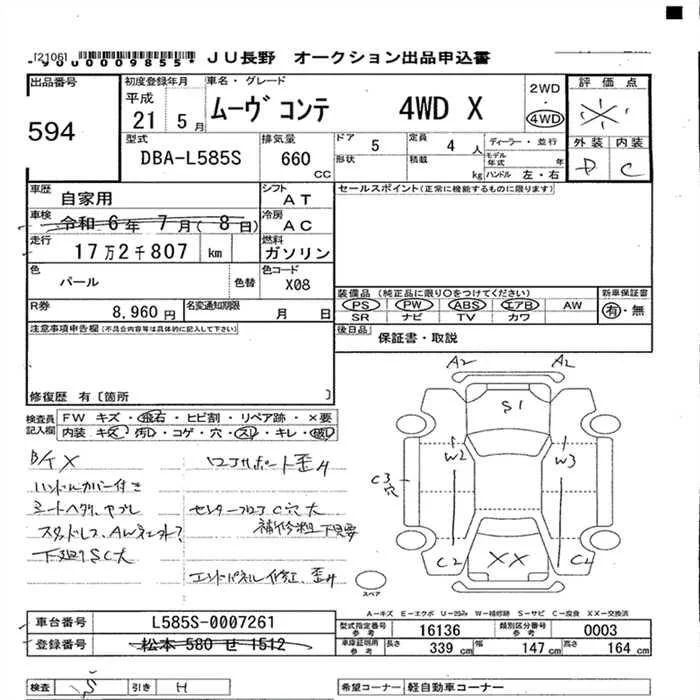 [2106]
9000009855
JU長野 オークション出品申込書
出品番号 初度登録年月 車名・グレード 2WD・4WD 評価点
594 平成 21 5月 ムーヴ コンテ 4WD X
型式 DBA-L585S 排気量 660 CC ドア 5 定員 4 人 ディーラー・並行 外装 内装
形状 積載 kg モデル年式 年 ハンドル 左・右 D C
車歴 自家用 シフト AT セールスポイント(正常に機能するものに限ります)
車検 令和 6年 7月( 8日) 冷房 AC
走行 17万2千807 km 燃料 ガソリン
色 パール 色替 色コード X08
装備品 (純正品に限り○をつけてください) 新車保証書
PS PW ABS エアB AW 有・無
SR ナビ TV カワ
R券 8,960 円 名変通知期限 月 日
後日品 保証書・取説
注意事項申告欄(不具合内容等は具体的に記入して下さい)
修復歴 有〔箇所 〕
検査員記入欄 FW キズ・飛石・ヒビ割・リペア跡・×要
内装 キズ・汚れ・コゲ・穴・スレ・キレ・破れ
A2 A2
S1
W2 W3
C3 穴
C2 XX C2
スペア
B/T X
ハンドルカバー付き
シートヘタリ、ヤブレ
下廻りSC大
ロアサポート歪み
センターフロアC穴大
補修粗 下見要
エンドパネル修正、歪み
A-キズ E-エクボ U-凹み W-補修跡 S-サビ C-腐食 XX-交換済
車台番号 L585S-0007261
登録番号 松本 580 せ 1512
型式指定番号 参考 16136 類別区分番号 参考 0003
車庫証明用 参考 長さ 339 cm 幅 147 cm 高さ 164 cm
検査 S 引き H 希望コーナー 軽自動車コーナー